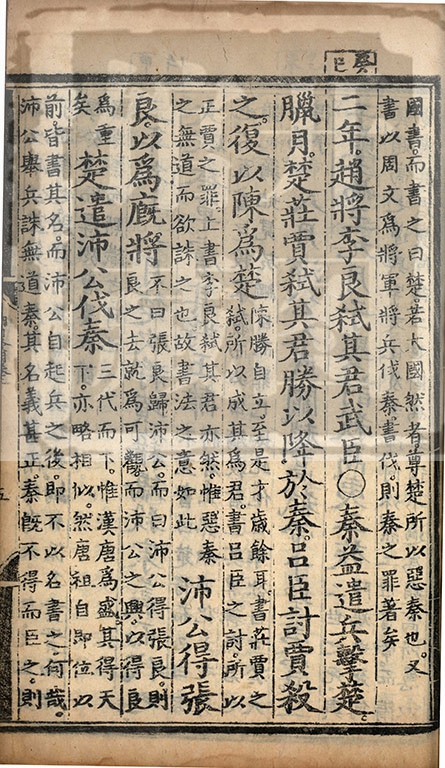 國書而書之曰楚若大國然者尊楚所以惡秦也又
書以周文為將軍將兵伐秦書伐則秦之罪著矣
二年趙將李良弑其君武臣○秦益遣兵擊楚
臘月楚莊賈弑其君勝以降於秦呂臣討賈殺
之復以陳為楚
陳勝自立至是才歲餘耳書莊賈之
弑所以成其為君書呂臣之討所以
正賈之罪上書李良弑其君亦然惟惡秦
之無道而欲誅之也故書法之意如此
沛公得張
良以為厩將
不曰張良歸沛公而曰沛公得張良則
良之去就為可觀而沛公之興以得良
為重
矣
楚遣沛公伐秦
三代而下惟漢唐為盛其得天
下亦略相似然唐祖自即位以
前皆書其名而沛公自起兵之後即不以名書之何哉
沛公舉兵誅無道秦其名義甚正秦既不得而臣之則